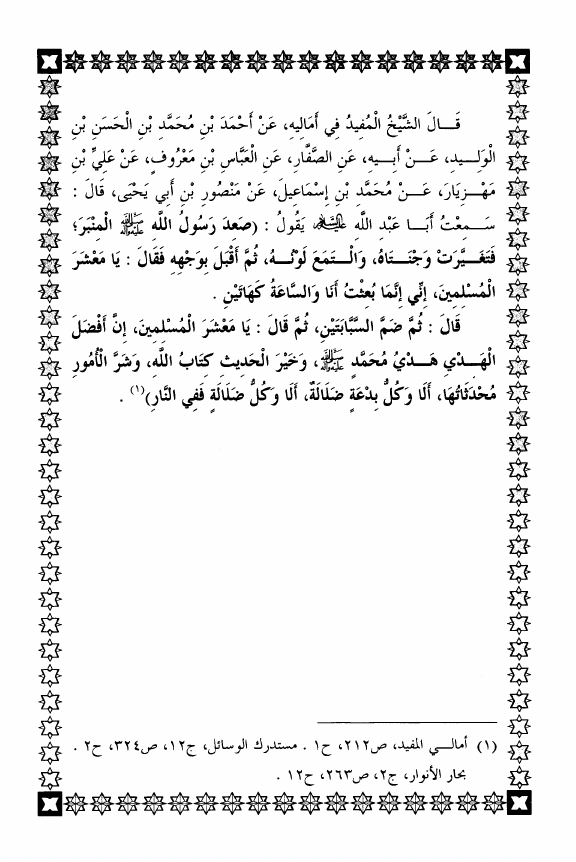 قَـــالَ الشَّيْخُ الْمُفِيدُ فِي أَمَالِيهِ، عَنْ أَحْمَدَ بْنِ مُحَمَّدِ بْنِ الْحَسَنِ بْنِ
الْوَلِـــيدِ، عَـــنْ أَبِـــيهِ، عَنِ الصَّفَّارِ، عَنِ الْعَبَّاسِ بْنِ مَعْرُوفٍ، عَنْ عَلِيِّ بْنِ
مَهْـزِيَارَ، عَـــنْ مُحَمَّدِ بْنِ إِسْمَاعِيلَ، عَنْ مَنْصُورِ بْنِ أَبِي يَحْيَى، قَالَ :
سَـــمِعْتُ أَبَـــا عَبْدِ اللَّه عليه السلام يَقُولُ : (صَعِدَ رَسُولُ اللَّه ﷺ الْمِنْبَرَ؛
فَتَغَيَّرَتْ وَجْنَتَاهُ، وَالْـــتَمَعَ لَوْنُـــهُ، ثُمَّ أَقْبَلَ بِوَجْهِهِ فَقَالَ : يَا مَعْشَرَ
الْمُسْلِمِينَ، إِنِّي إِنَّمَا بُعِثْتُ أَنَا وَالسَّاعَةُ كَهَاتَيْنِ .
قَالَ : ثُمَّ ضَمَّ السَّبَّابَتَيْنِ، ثُمَّ قَالَ : يَا مَعْشَرَ الْمُسْلِمِينَ، إِنَّ أَفْضَلَ
الْهَدْيِ هَـــدْيُ مُحَمَّدٍ ﷺ، وَخَيْرَ الْحَدِيثِ كِتَابُ اللَّه، وَشَرَّ الْأُمُورِ
مُحْدَثَاتُهَا، أَلَا وَكُلُّ بِدْعَةٍ ضَلَالَةٌ، أَلَا وَكُلُّ ضَلَالَةٍ فَفِي النَّارِ)(١) .
(١) أمالـــي المفيد، ص٢١٢، ح١ . مستدرك الوسائل، ج١٢، ص٣٢٤، ح٢ .
بحار الأنوار، ج٢، ص٢٦٣، ح١٢ .